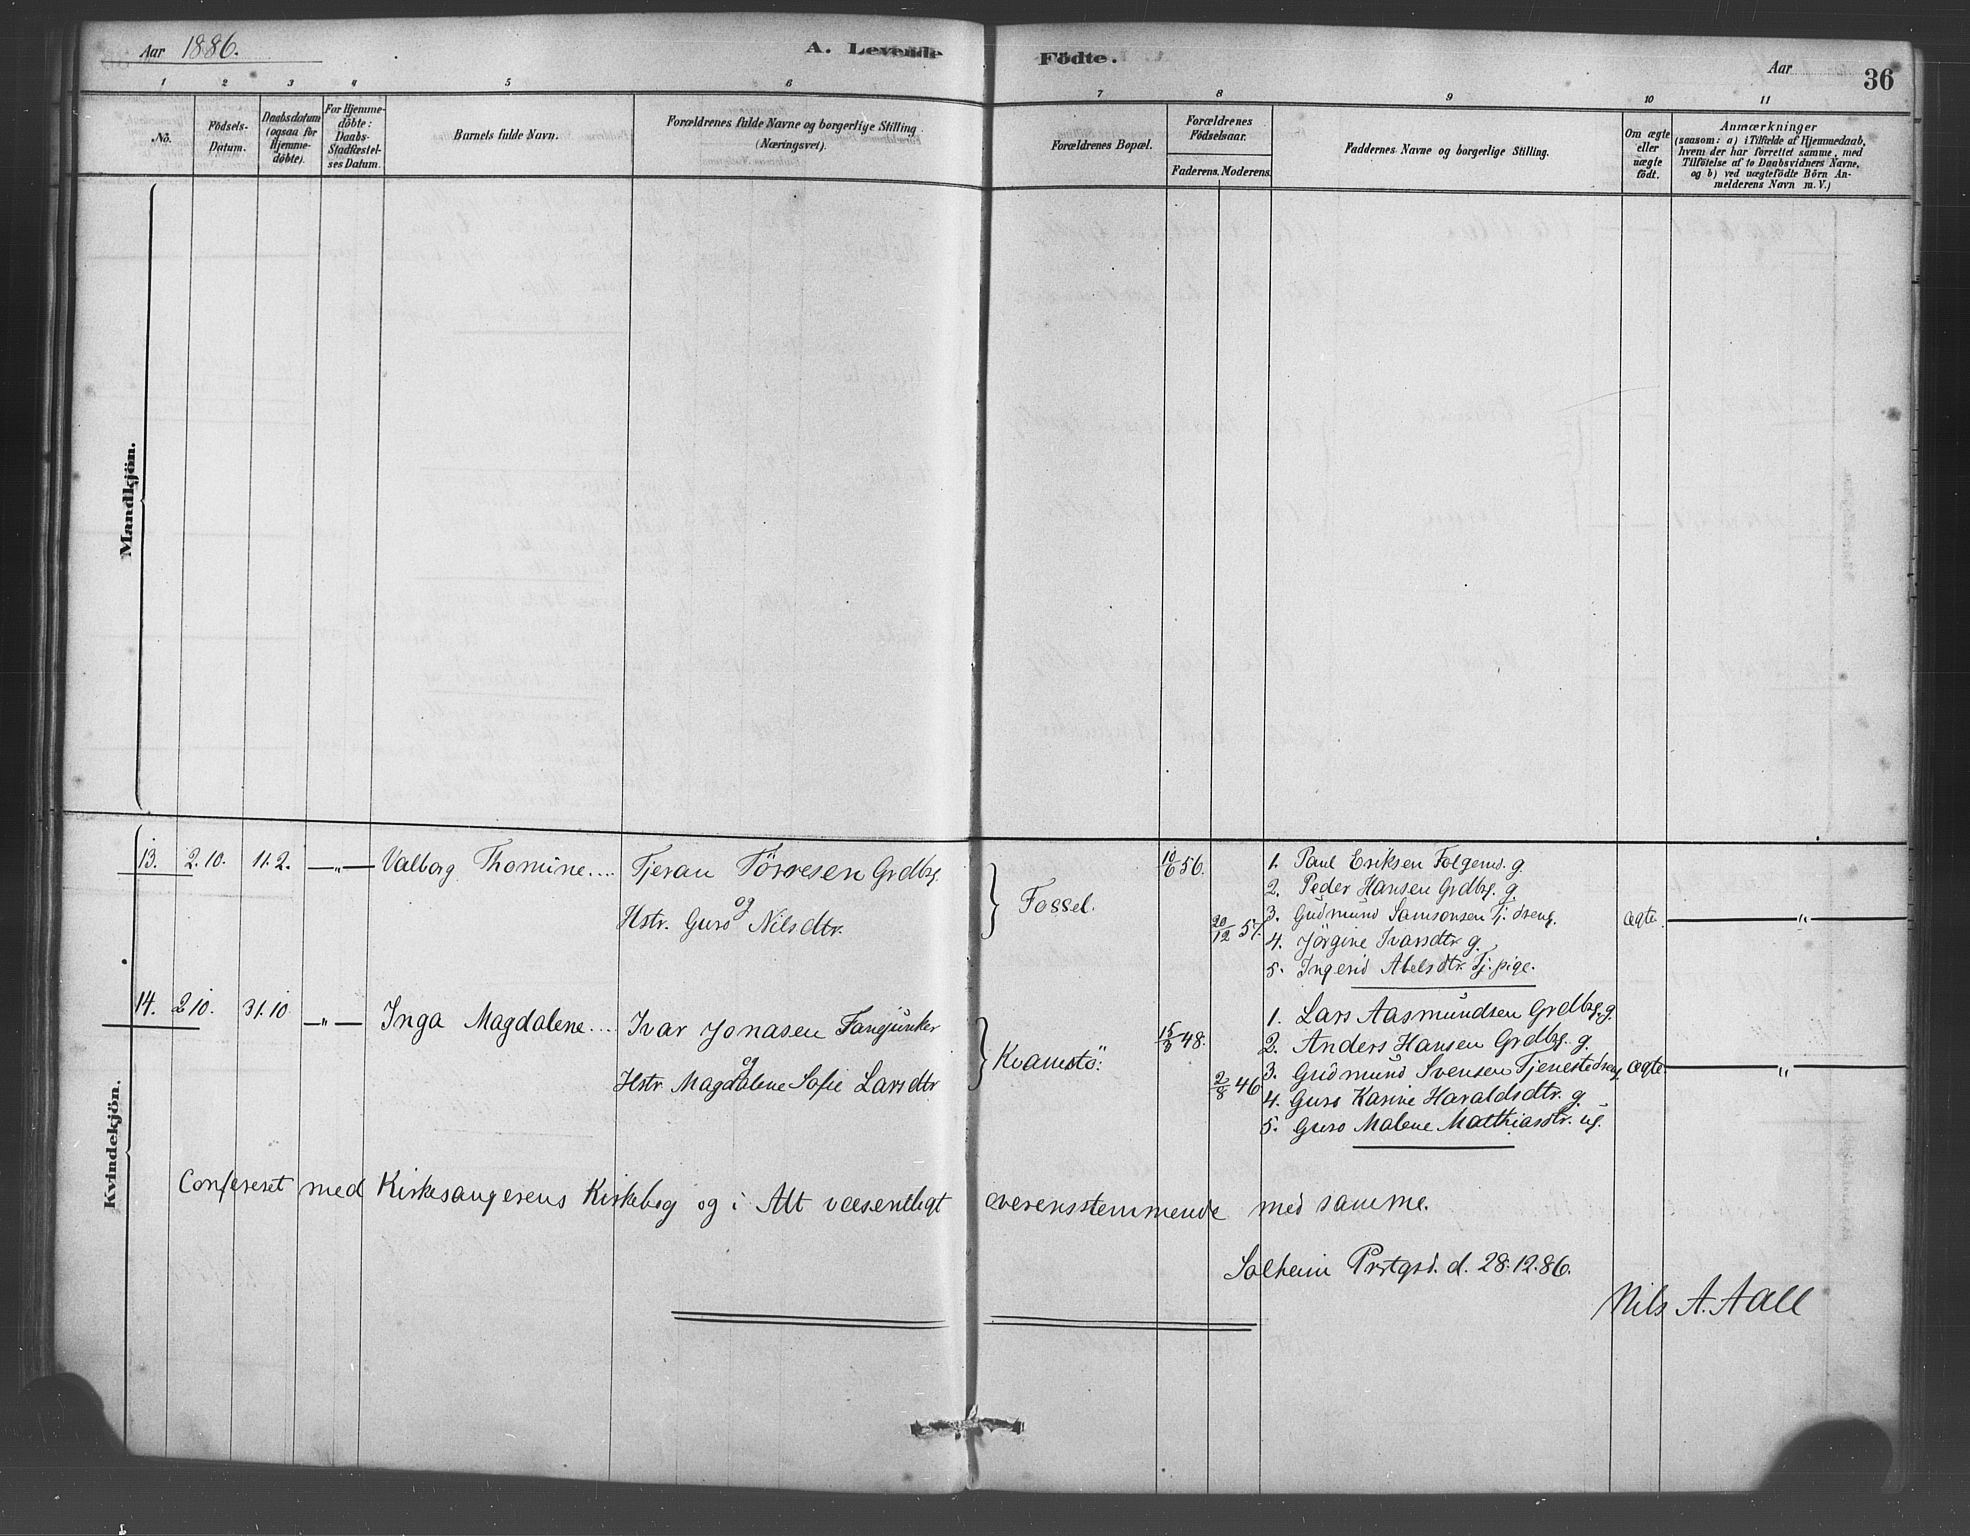 Aar 1886.
A. Levende Födte.
Aar
36
1 2 3 4 5 6 7 8 9 10 11
No.
Födsels-Datum.
Daabsdatum (ogsaa for Hjemme-döbte).
For Hjemme-döbte: Daabs-Stadfæstel-ses Datum.
Barnets fulde Navn.
Forældrenes fulde Navne og borgerlige Stilling (Næringsvei).
Forældrenes Bopæl.
Forældrenes Födselsaar.
Faderens. Moderens.
Faddernes Navne og borgerlige Stilling.
Om ægte eller uægte födt.
Anmærkninger
(saasom: a) i Tilfælde af Hjemmedaab,
hvem der har forrettet samme, med
Tilföielse af to Daabsvidners Navne,
og b) ved uægtefödte Börn An-
melderens Navn m. V.)
Mandkjön.
Kvindekjön.
13. 2.10. 11.2. —„— Valborg Thomine.... Tjeran Törresen Grdbrg.
og
Hstr. Guro Nilsdtr.
Fossel.
10/6 56.
20/12 57.
1. Paul Eriksen Folgemd. g.
2. Peder Hansen Grdbrg. g.
3. Gudmund Samsonsen Tj. dreng.
4. Jörgine Ivarsdtr g.
5. Ingerid Abelsdtr. Tj. pige.
ægte. —„—
14. 2.10. 31.10 —„— Inga Magdalene... Ivar Jonasen
og
Hstr Magdalene Sofie Larsdtr
Kvamsö.
15/3 48.
2/8 46
1. Lars Aasmundsen Grdbrg. g.
2. Anders Hansen Grdbrg. g.
3. Gudmund Svensen Tjenestedreng
4. Guro Karine Haraldsdtr. g.
5. Guro Malene Matthiasdtr. ug.
ægte. —„—
Confereret med Kirkesangerens Kirkebog og i Alt væsentligt overensstemmende med samme.
Solheim Prstgrd. d. 28.12.86.
Nils A. Aall